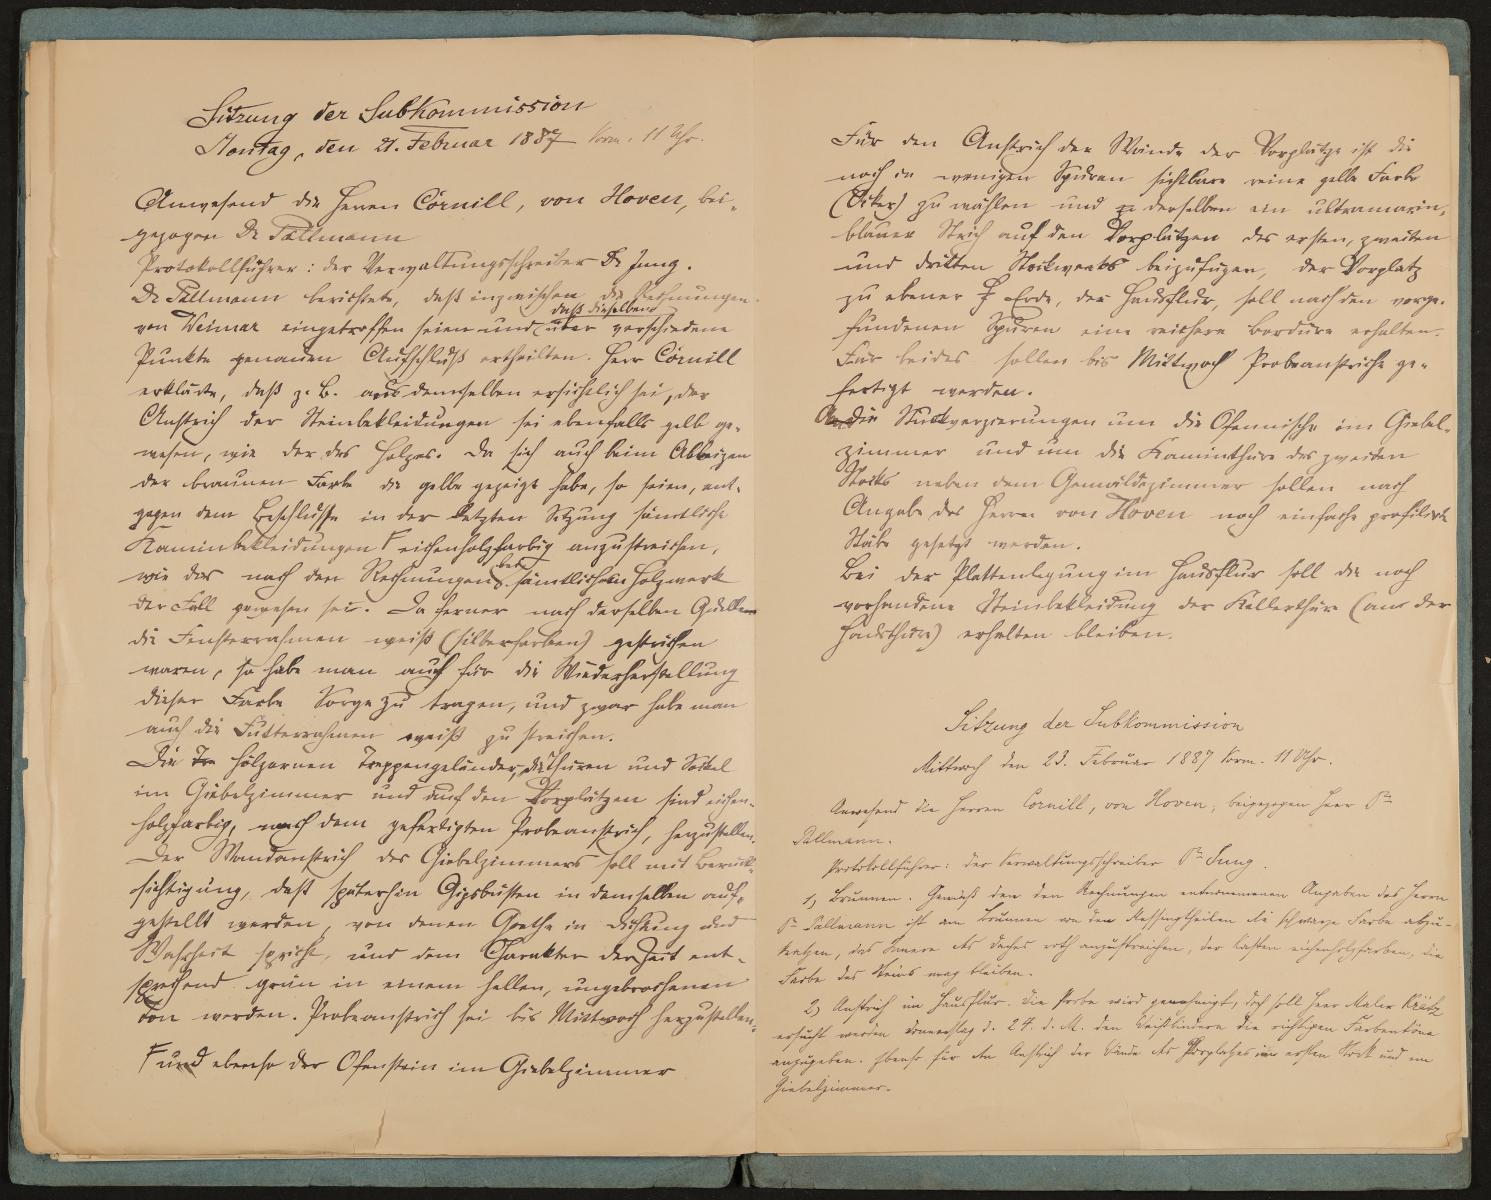 Sitzung der Subkommission
Montag, den 21. Februar 1887 Vorm. 11 Uhr.
Anwesend die Herren Cornill, von Hoven, bei-
gezogen Dr Pallmann
Protokollführer: der Verwaltungsschreiber Dr Jung.
Dr Pallmann berichtete, daß inzwischen die Rechnungen
daß dieselben
von Weimar eingetroffen seien und über verschiedene
Punkte genauen Aufschluß ertheilten. Herr Cornill
erklärte, daß z. B. aus demselben ersichtlich sei, der
Anstrich der Steinbekleidungen sei ebenfalls gelb ge-
wesen, wie der des Holzes. Da sich auch beim Abbeizen
der braunen Farbe die gelbe gezeigt habe, so seien, ent-
gegen dem Beschlusse in der letzten Sitzung sämtliche
Kaminbekleidungen Γ eichenholzfarbig anzustreichen,
wie das nach den Rechnungen bei sämtlichem Holzwerk
der Fall gewesen sei. Da ferner nach derselben Quelle
die Fensterrahmen weiß (silberfarben) gestrichen
waren, so habe man auch für die Wiederherstellung
dieser Farbe Sorge zu tragen, und zwar habe man
auch die Futterrahmen weiß zu streichen.
Die Tre hölzernen Treppengeländer, die Thüren und Sockel
im Giebelzimmer und auf den Vorplätzen sind eichen-
holzfarbig, nach dem gefertigten Probeanstrich, herzustellen.
Der Wandanstrich des Giebelzimmers soll mit Berück-
sichtigung, daß späterhin Gipsbüsten in demselben auf-
gestellt werden, von denen Goethe in Dichtung und
Wahrheit spricht, und dem Charakter der Zeit ent-
sprechend grün in einem hellen, ungebrochenen
Ton werden. Probeanstrich sei bis Mittwoch herzustellen.
Γ und ebenso der Ofenstein im Giebelzimmer
Für den Anstrich der Wände der Vorplätze ist die
noch in wenigen Spuren sichtbare reine gelbe Farbe
(Ocker) zu wählen und zu derselben ein ultramarin-
blauer Strich auf den Vorplätzen des ersten, zweiten
und dritten Stockwerks beizufügen, der Vorplatz
zu ebener Erde, der Hausflur, soll nach den vorge-
fundenen Spuren eine reichere Bordüre erhalten.
Für beides sollen bis Mittwoch Probeanstriche ge-
fertigt werden.
An die Stuckverzierungen um die Ofennische im Giebel-
zimmer und um die Kaminthüre des zweiten
Stocks neben dem Gemäldezimmer sollen nach
Angabe des Herrn von Hoven noch einfache profilirte
Stäbe gesetzt werden.
Bei der Plattenlegung im Hausflur soll die noch
vorhandene Steinbekleidung der Kellerthüre (an der
Hausthüre) erhalten bleiben.
Sitzung der Subkommission
Mittwoch den 23. Februar 1887 Vorm. 11 Uhr.
Anwesend die Herren Cornill, von Hoven, beigezogen Herr Dr
Pallmann.
Protokollführer: der Verwaltungsschreiber Dr Jung.
1, Brunnen. Gemäß den den Rechnungen entnommenen Angaben des Herrn
Dr Pallmann ist am Brunnen von den Messingtheilen die schwarze Farbe abzu-
kratzen, das Innere des Daches roth anzustreichen, der Kasten eichenholzfarben, die
Farbe des Steins mag bleiben.
2, Anstrich im Hausflur. Die Probe wird genehmigt, doch soll Herr Maler
ersucht werden Donnerstag d. 24. d. M. den Weißbindern die richtigen Farbentöne
anzugeben. Ebenso für den Anstrich der Wände des Vorplatzes im ersten Stock und im
Giebelzimmer.